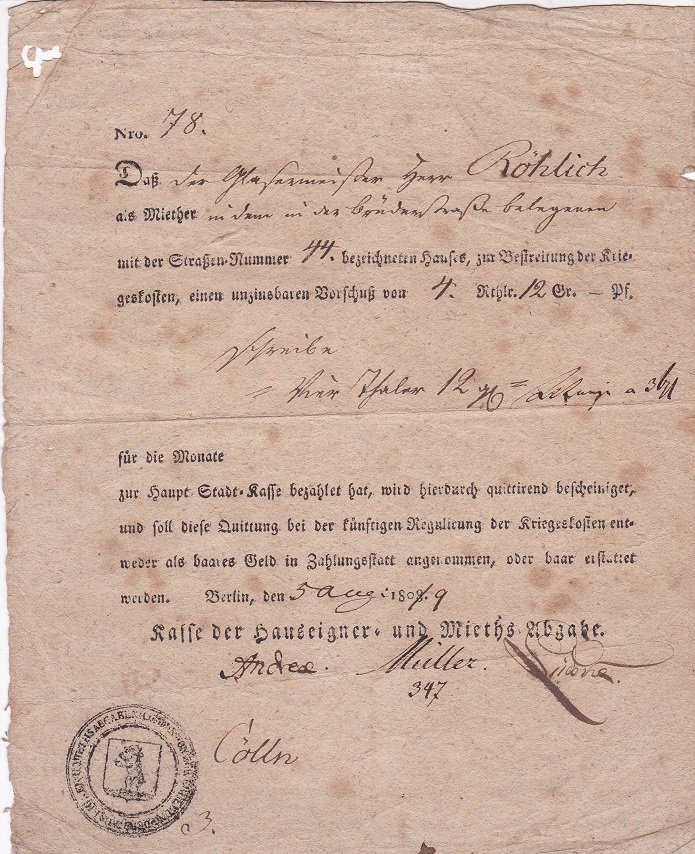 Nro. 78.
Daß der Glasermeister Herr Röhlich
als Miether in dem in der Brüderstraße belegenen
mit der Straßen-Nummer 44. bezeichneten Hauses, zur Bestreitung der Krie-
geskosten, einen unzinsbaren Vorschuß von 4. Rthlr. 12 Gr. — Pf.
schreibe
Vier Thaler 12 gr
für die Monate
zur Haupt Stadt-Kasse bezahlet hat, wird hierdurch quittirend bescheiniget,
und soll diese Quittung bei der künftigen Regulirung der Kriegeskosten ent-
weder als baares Geld in Zahlungsstatt angenommen, oder baar erstattet
werden. Berlin, den 5 Aug. 1809
Kasse der Hauseigner- und Mieths-Abgabe.
Andreae. Müller.
347
Cölln
3.